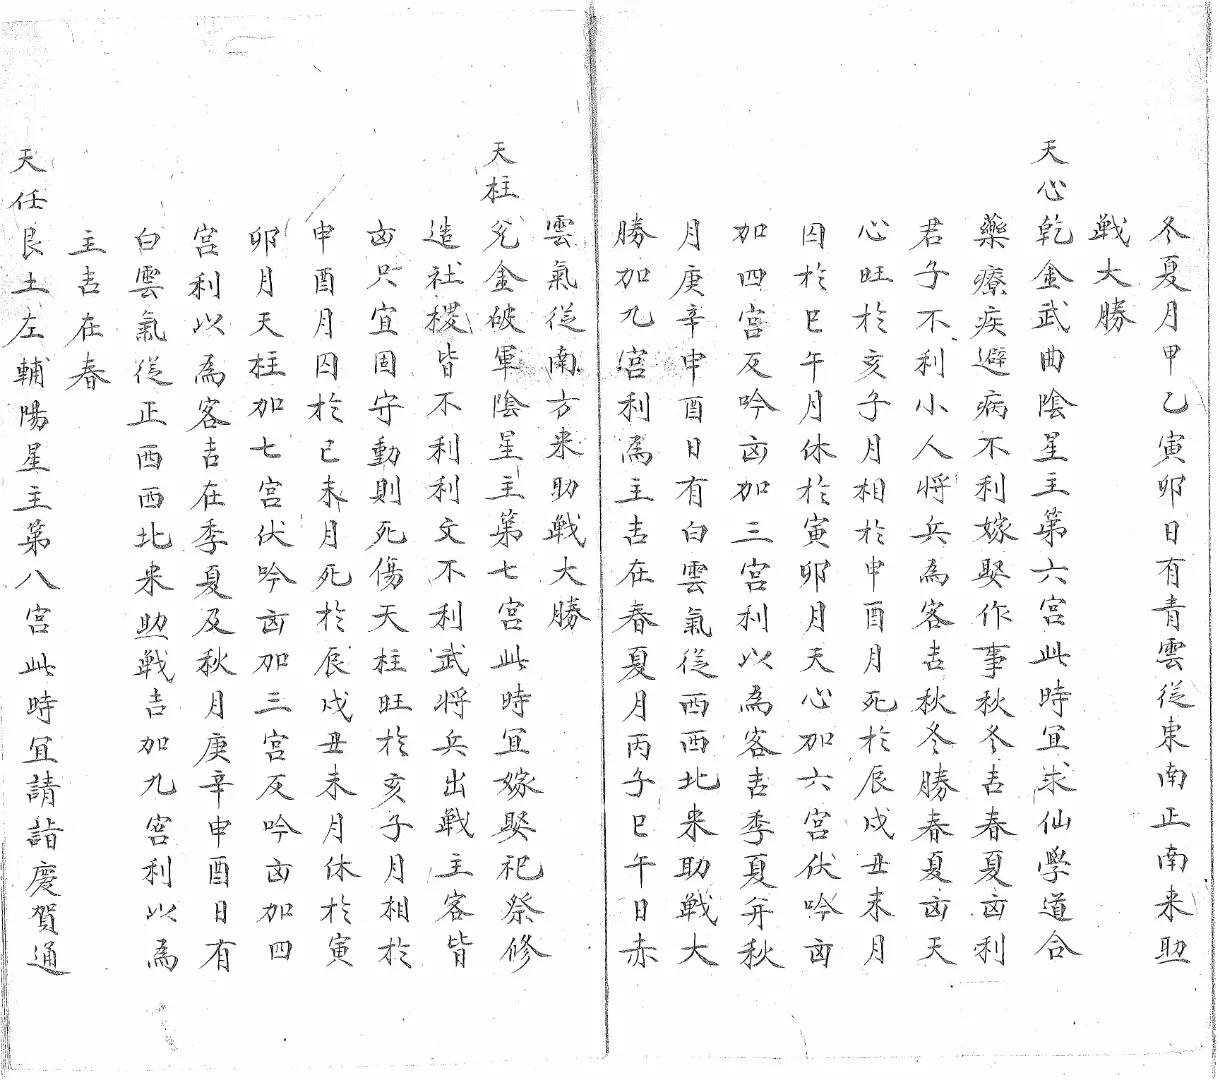 冬夏月甲乙寅卯日有青雲從東南正南来助
戰大勝
天心乾金武曲陰星主第六宮此時宜求仙學道合
藥療疾避病不利嫁娶作事秋冬吉春夏凶利
君子不利小人将兵為客吉秋冬勝春夏凶天
心旺於亥子月相於申酉月死於辰戌丑未月
囚於巳午月休於寅卯月天心加六宮伏吟凶
加四宮反吟凶加三宮利以為客吉季夏并秋
月庚辛申酉日有白雲氣從西西北来助戰大
勝加九宮利為主吉在春夏月丙子巳午日赤
雲氣從南方来助戰大勝
天柱兌金破軍陰星主第七宮此時宜嫁娶祀祭修
造社稷皆不利利文不利武将兵出戰主客皆
凶只宜固守動則死傷天柱旺於亥子月相於
申酉月囚於已未月死於辰戌丑未月休於寅
卯月天柱加七宮伏吟凶加三宮反吟凶加四
宮利以為客吉在季夏及秋月庚辛申酉日有
白雲氣從正西西北来助戰吉加九宮利以為
主吉在春
天任艮土左輔陽星主第八宮此時宜請詣慶賀通